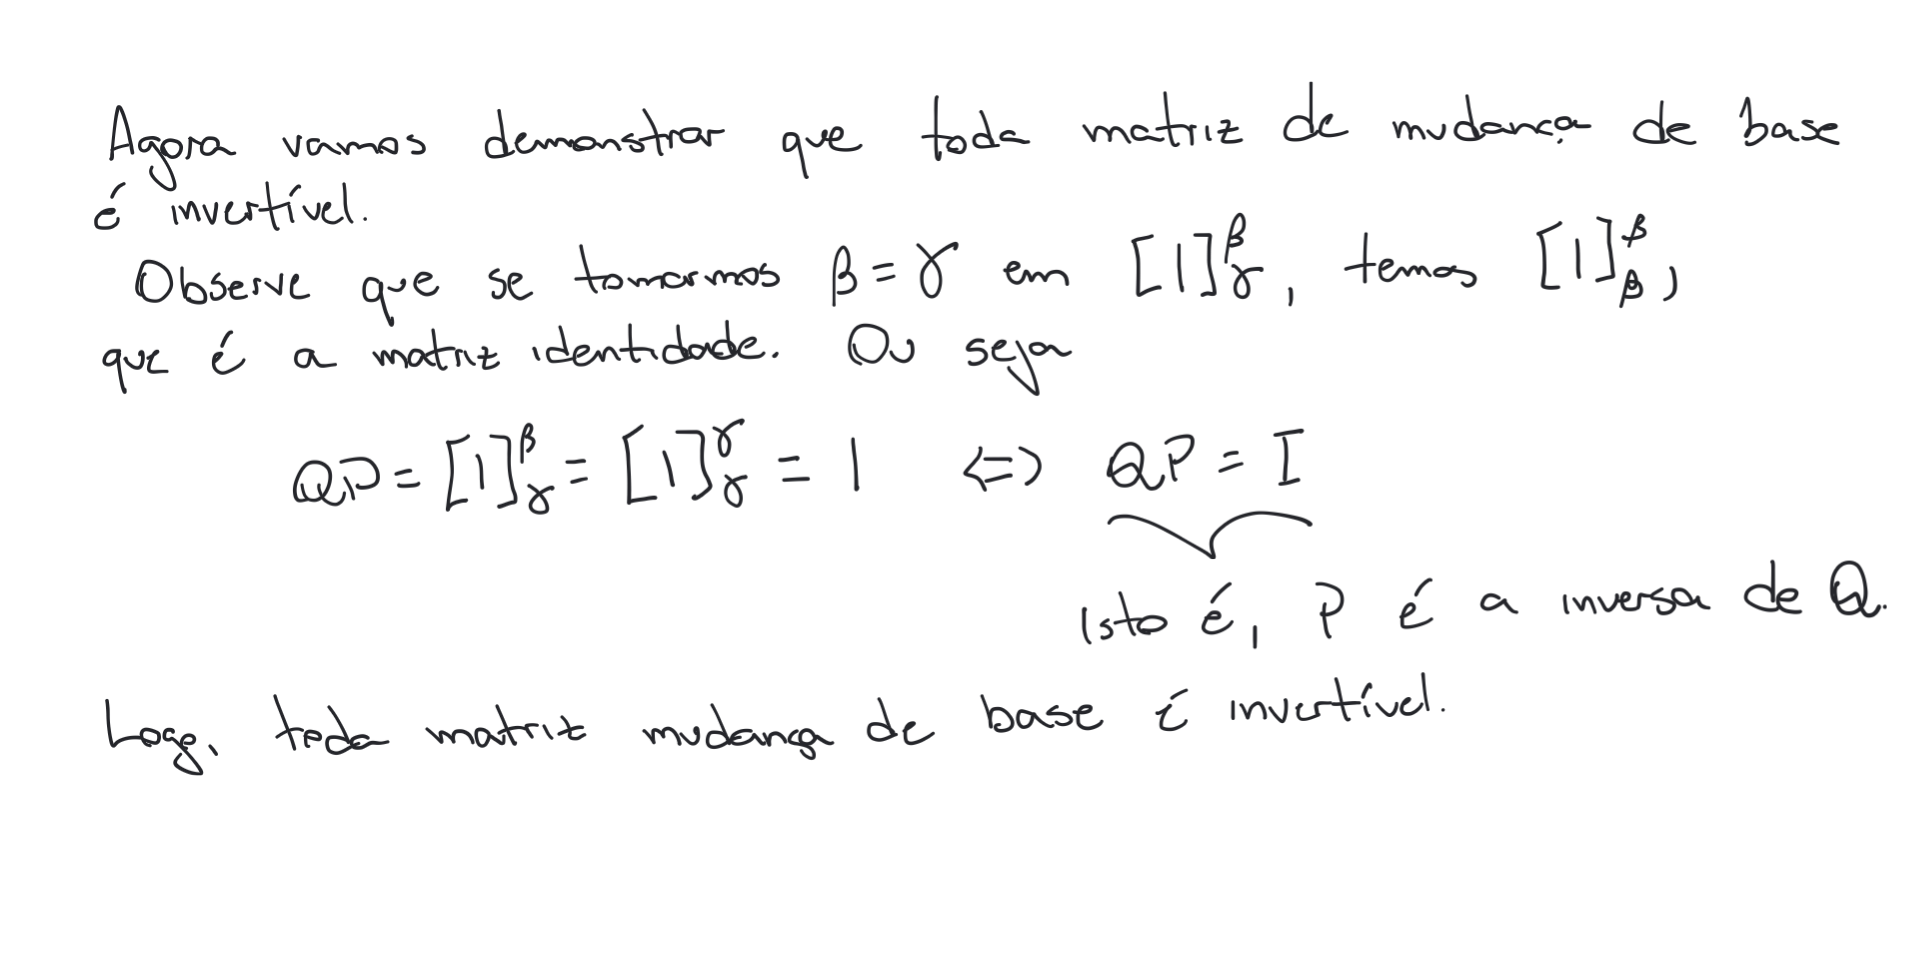 Agora vamos demonstrar que toda matriz de mudança de base
é invertível.
Observe que se tomarmos β = γ em [1]^β_γ, temos [1]^β_β,
que é a matriz identidade. Ou seja
QP = [1]^β_γ = [1]^γ_γ = 1 <=> QP = I
Isto é, P é a inversa de Q.
Logo, toda matriz mudança de base é invertível.